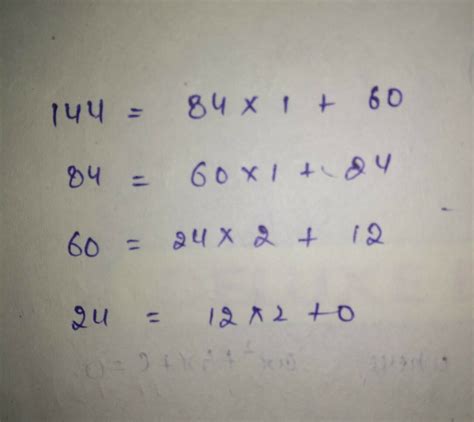 144 = 84 × 1 + 60
84 = 60 × 1 + 24
60 = 24 × 2 + 12
24 = 12 × 2 + 0